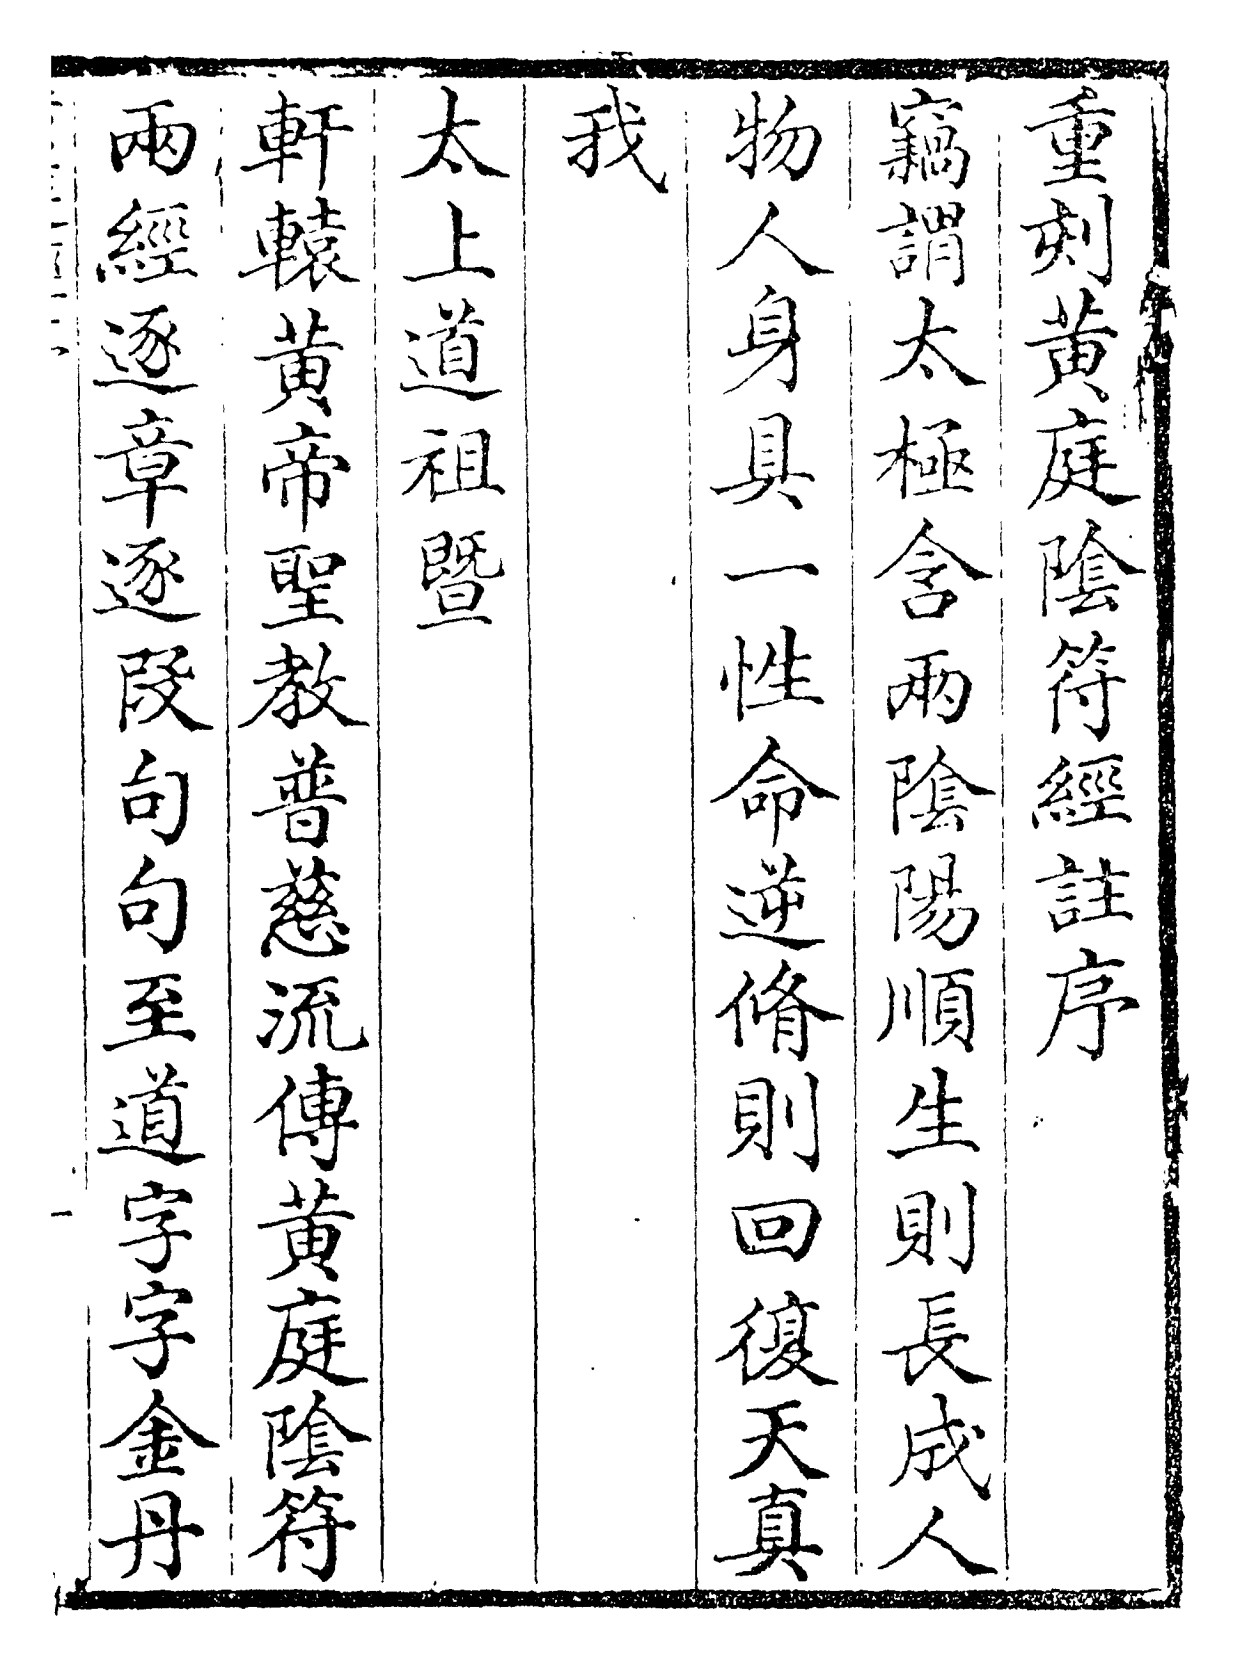 重刻黄庭陰符經註序
竊謂太極含兩陰陽順生則長成人
物人身具一性命逆脩則回復天真
我
太上道祖暨
軒轅黄帝聖教普慈流傳黄庭陰符
兩經逐章逐段句句至道字字金丹
一